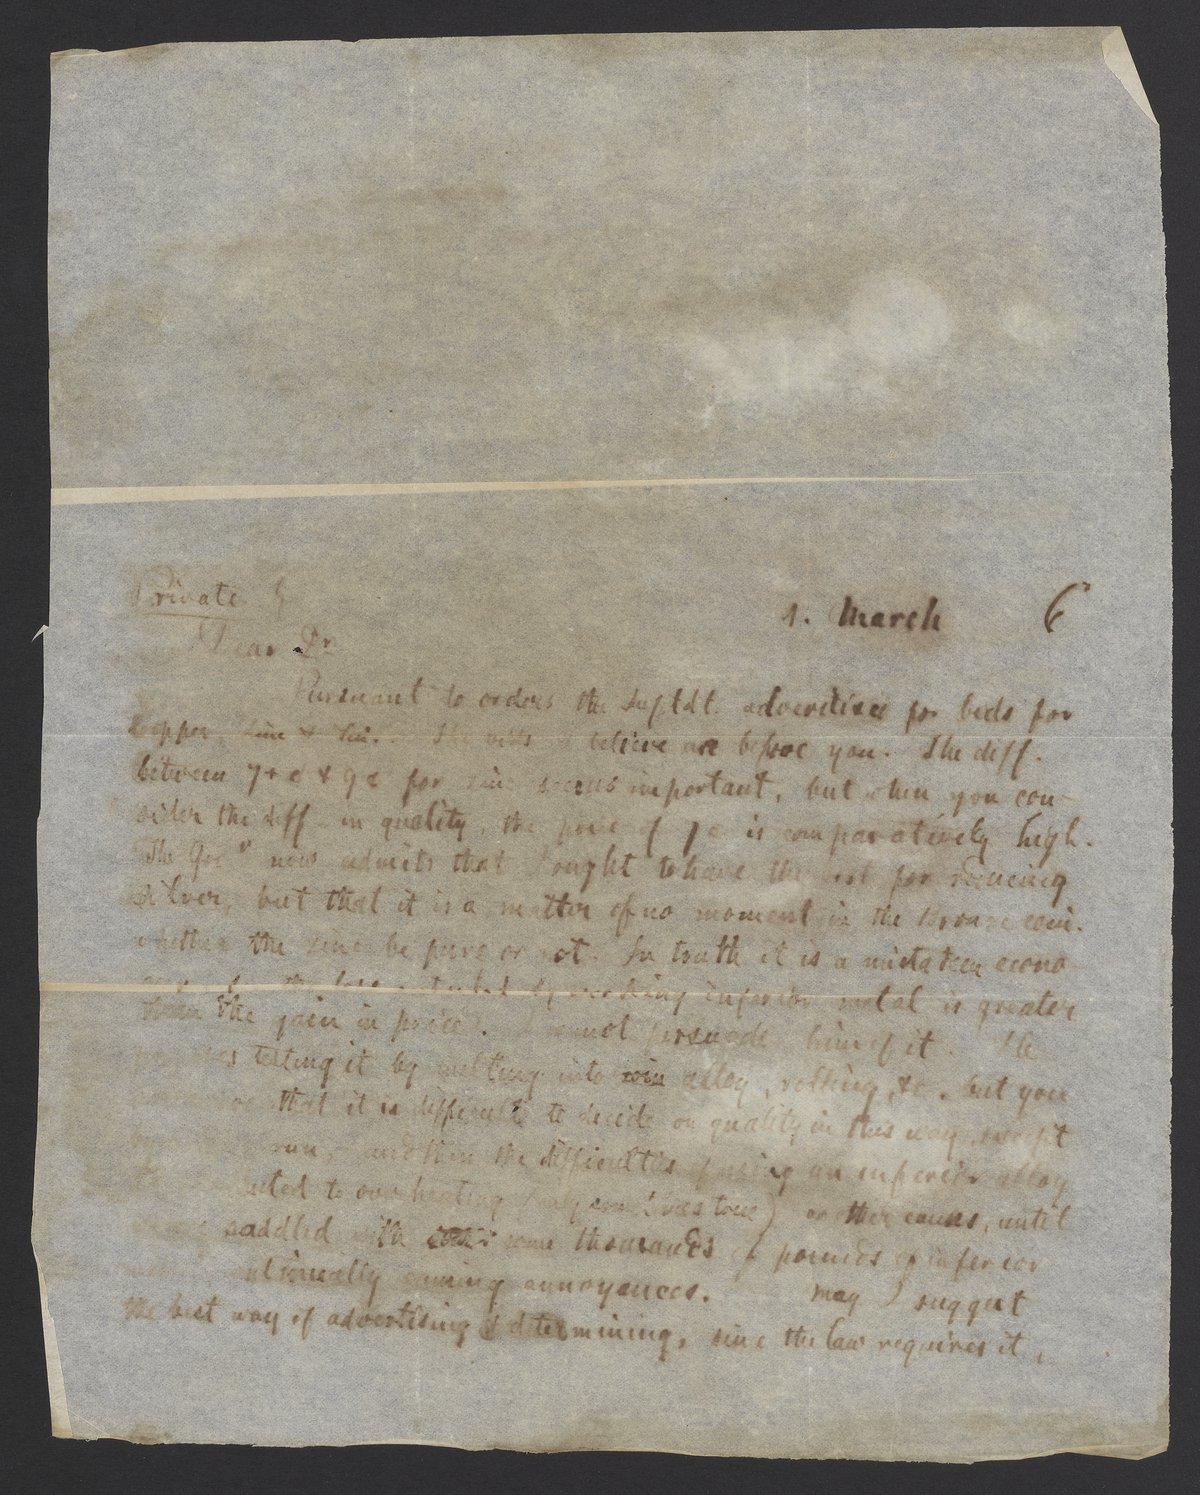 Private
1. March 6
Dear Dr
Pursuant to orders the Suptdt. advertises for bids for
copper, zinc & tin. The bids I believe are before you. The diff.
between 7+ c & 9 c for zinc seems important, but when you con-
sider the diff. in quality, the price of 7 c is comparatively high.
The Gov now admits that I ought to have the best for reducing
silver, but that it is a matter of no moment in the Bronze coin.
whether the zinc be pure or not. In truth it is a mistaken econo-
the loss by working inferior metal is greater
than the gain in price. I cannot persuade him of it. He
proposes testing it by melting into coin alloy, rolling, &c. but you
that it is difficult to decide on quality in this way, except
by run, and then the difficulties of using an inferior alloy
to overheating (only sometimes true) or other causes, until
saddled with some thousands of pounds of inferior
continually causing annoyances. May I suggest
the best way of advertising & determining, since the law requires it,